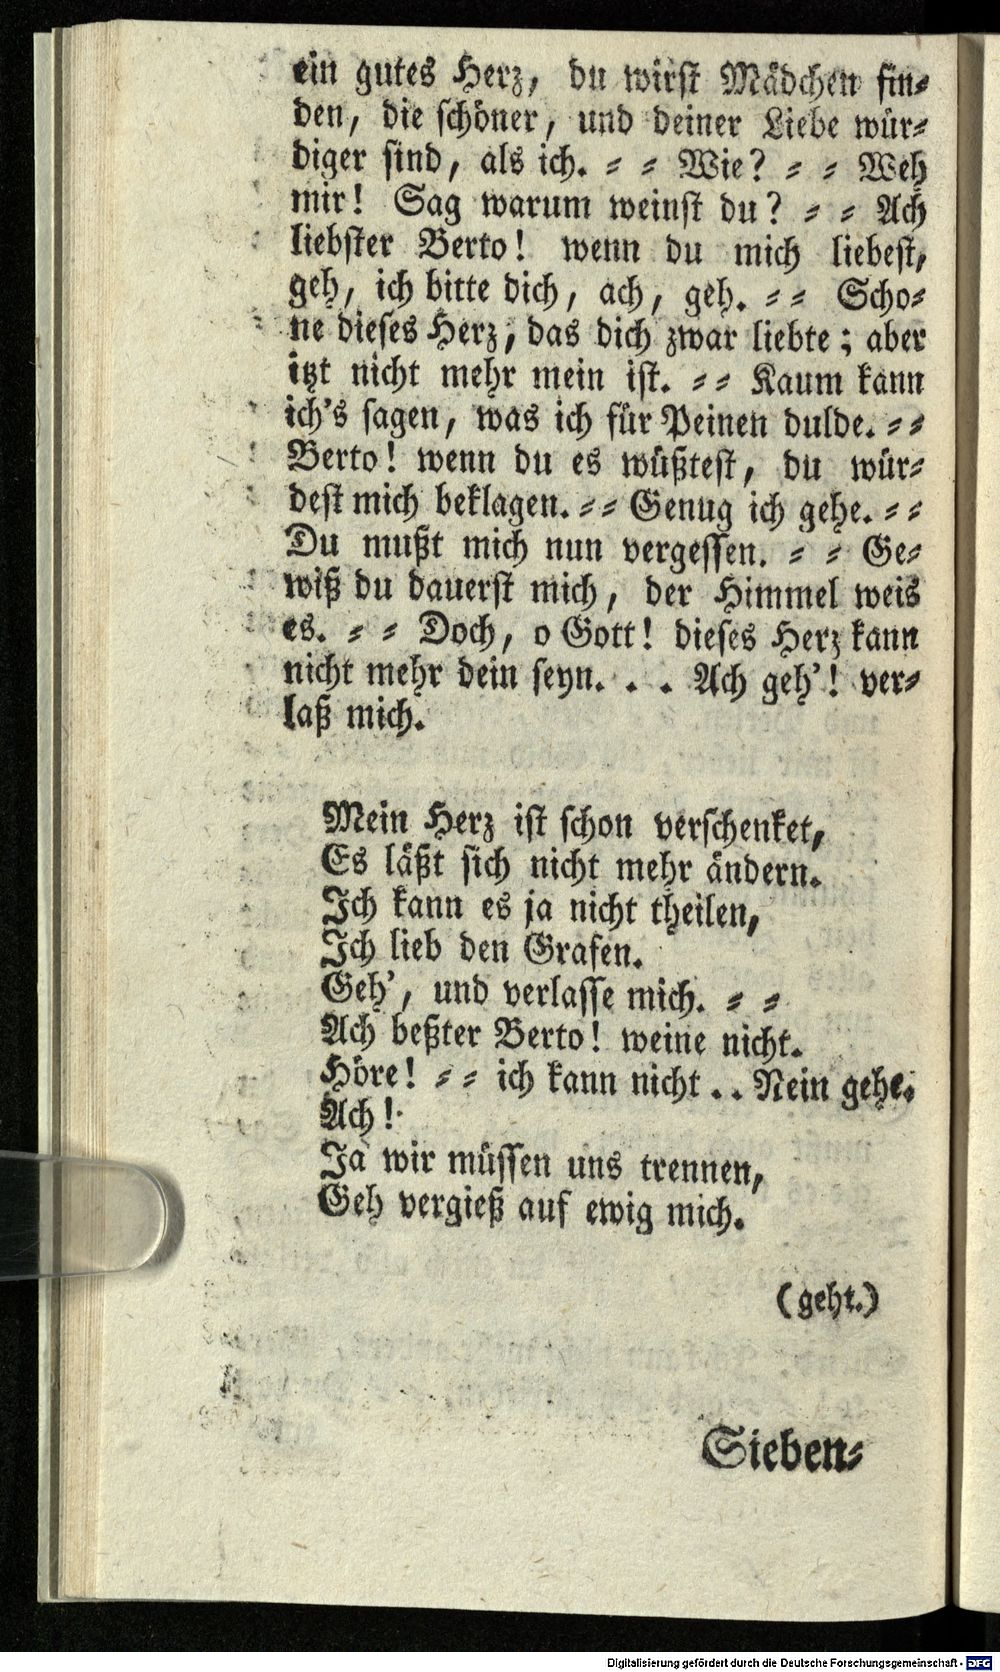 ein gutes Herz, du wirst Mädchen fin⸗
den, die schöner, und deiner Liebe wür⸗
diger sind, als ich. ⸗ ⸗ Wie? ⸗ ⸗ Weh
mir! Sag warum weinst du? ⸗ ⸗ Ach
liebster Berto! wenn du mich liebest,
geh, ich bitte dich, ach, geh. ⸗ ⸗ Scho⸗
ne dieses Herz, das dich zwar liebte; aber
itzt nicht mehr mein ist. ⸗ ⸗ Kaum kann
ich's sagen, was ich für Peinen dulde. ⸗ ⸗
Berto! wenn du es wüßtest, du wür⸗
dest mich beklagen. ⸗ ⸗ Genug ich gehe. ⸗ ⸗
Du mußt mich nun vergessen. ⸗ ⸗ Ge⸗
wiß du dauerst mich, der Himmel weis
es. ⸗ ⸗ Doch, o Gott! dieses Herz kann
nicht mehr dein seyn. . . Ach geh'! ver⸗
laß mich.
Mein Herz ist schon verschenket,
Es läßt sich nicht mehr ändern.
Ich kann es ja nicht theilen,
Ich lieb den Grafen.
Geh', und verlasse mich. ⸗ ⸗
Ach beßter Berto! weine nicht.
Höre! ⸗ ⸗ ich kann nicht . . Nein gehe.
Ach!
Ja wir müssen uns trennen,
Geh vergieß auf ewig mich.
(geht.)
Sieben⸗
Digitalisierung gefördert durch die Deutsche Forschungsgemeinschaft - DFG